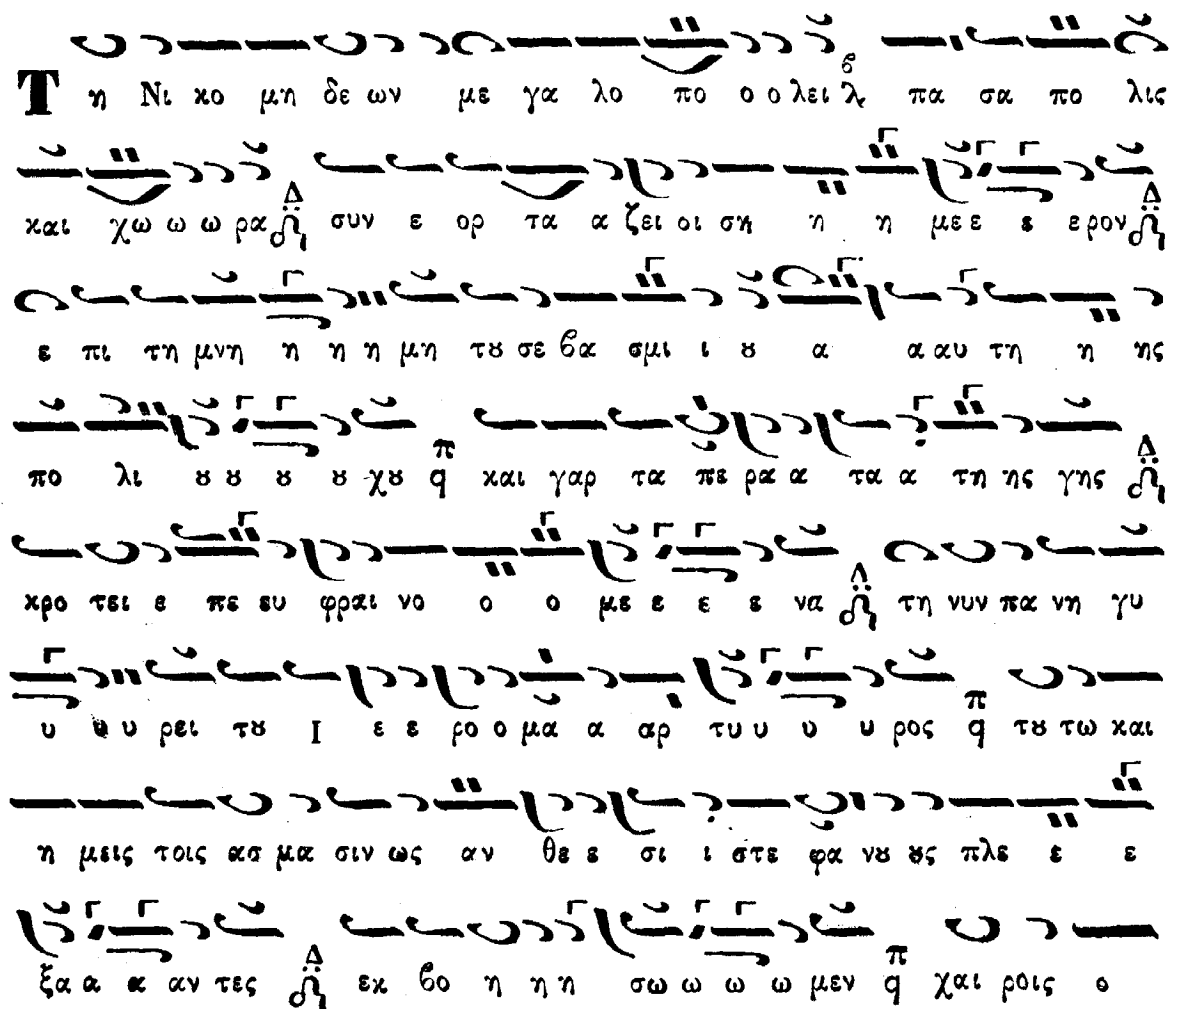 Τ η Νι κο μη δε ων με γα λο πο ο ο λει λ πα σα πο λις
και χω ω ω ρα συν ε ορ τα α ζει οι ση η η με ε ε ε ρον
ε πι τη μνη η η η μη τȣ σε βα σμι ι ȣ α α αυ τη η ης
πο λι ȣ ȣ ȣ ȣ χȣ και γαρ τα πε ρα α τα α τη ης γης
κρο τει ε πε ευ φραι νο ο ο με ε ε ε να τη νυν πα νη γυ
υ υ υ ρει τȣ Ι ε ε ρο ο μα α αρ τυ υ υ υ ρος τȣ τω και
η μεις τοις ασ μα σιν ως αν θε ε σι ι στε φα νȣ ȣς πλε ε ε
ξα α α αν τες εκ βο η η η σω ω ω ω μεν χαι ροις ο